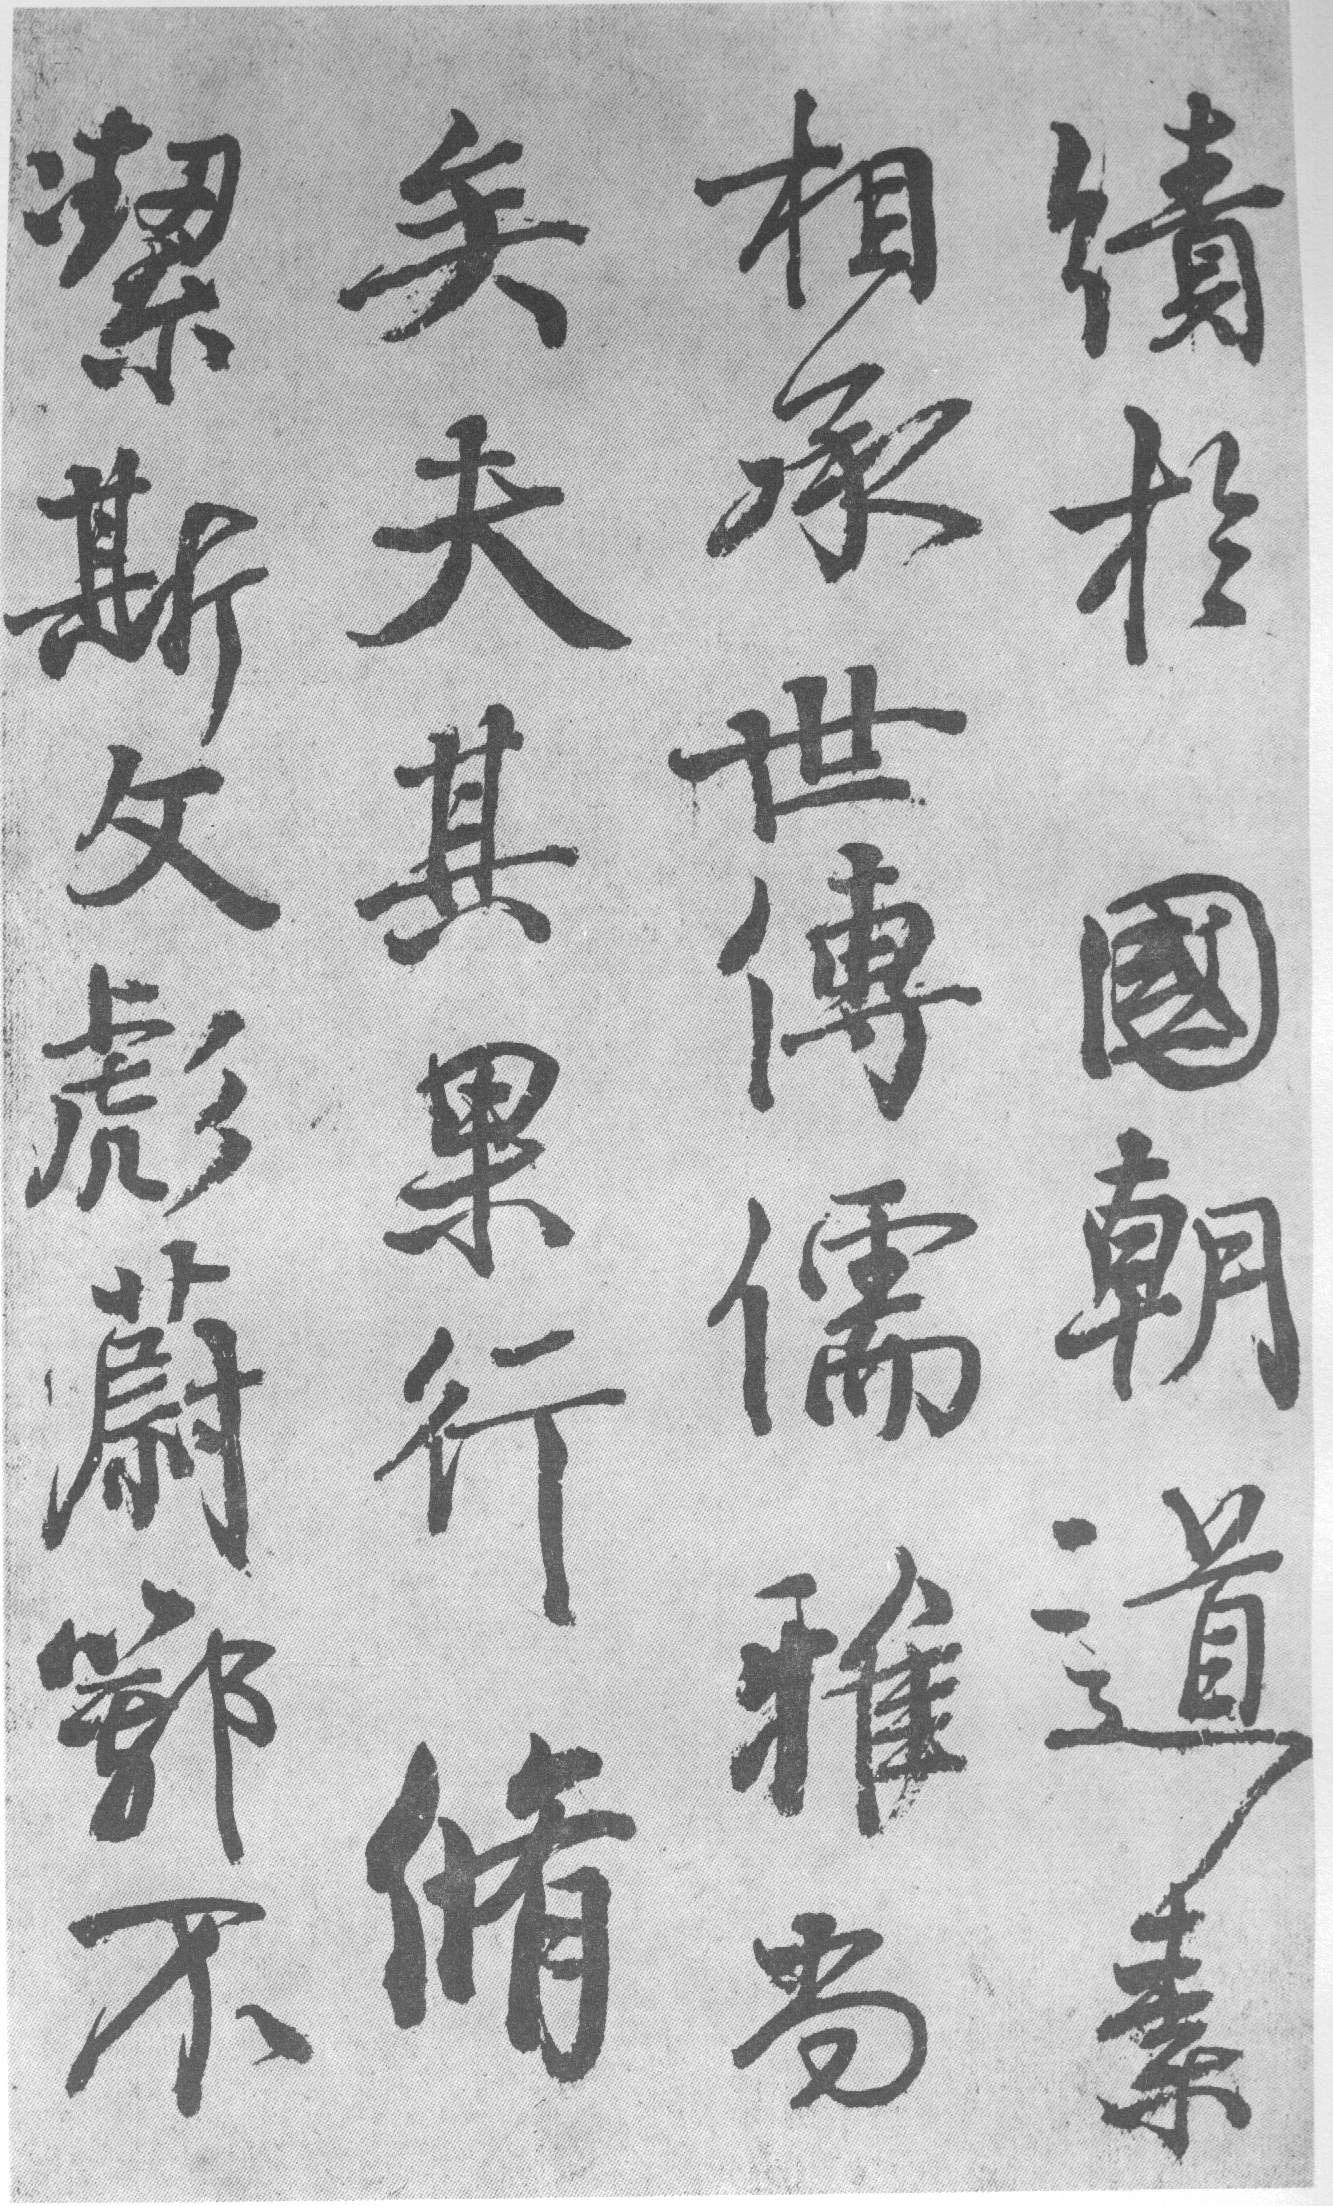 績於國朝道素
相承世傳儒雅尚
矣夫其果行脩
潔斯文彪蔚鄠不